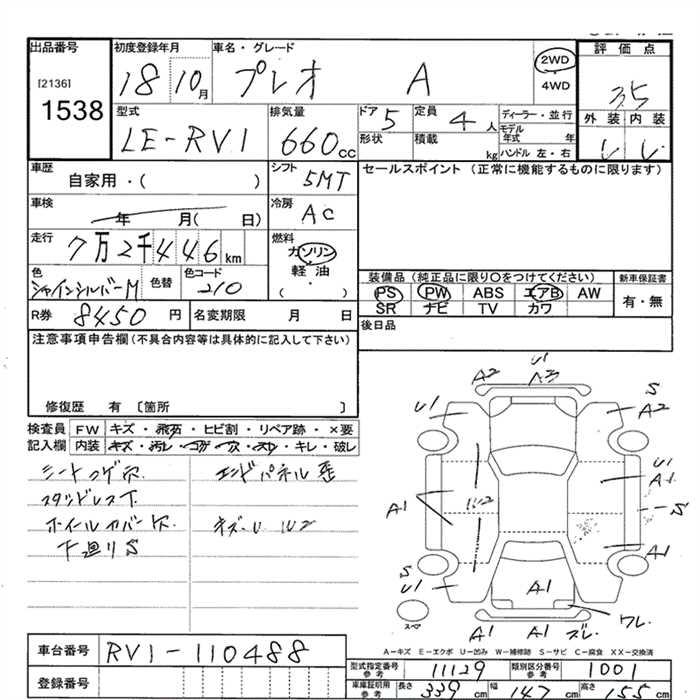 出品番号
[2136]
1538
初度登録年月
18 10月
車名・グレード
プレオ A
2WD
・
4WD
評価点
3.5
外装 内装
型式
LE-RV1
排気量
660cc
ドア 5
形状
定員 4人
積載 kg
ディーラー・並行
モデル年式 年
ハンドル 左・右
車歴
自家用・( )
シフト
5MT
セールスポイント (正常に機能するものに限ります)
車検
年 月( 日)
冷房
AC
走行
7万2千446km
燃料
ガソリン
軽油
( ・ )
色
シャインシルバーM
色替
色コード
210
装備品 (純正品に限り○をつけてください)
PS PW ABS エアB AW
SR ナビ TV カワ
新車保証書
有・無
R券 8450円
名変期限 月 日
後日品
注意事項申告欄 (不具合内容等は具体的に記入して下さい)
修復歴 有 〔箇所 〕
検査員記入欄
FW キズ・飛石・ヒビ割・リペア跡・×要
内装 キズ・汚レ・コゲ・穴・スレ・キレ・破レ
シートコゲ穴.
スタッドレスT.
ホイールカバー欠.
下廻りS
エンドパネル歪
U1
A2
A3
U1
S
A2
U1
A1
A1
S
A1
S
U1
A1
A1
A1
スペア
A-キズ E-エクボ U-凹み W-補修跡 S-サビ C-腐食 XX-交換済
車台番号 RV1-110488
登録番号
型式指定番号 参考 11129
類別区分番号 参考 1001
車庫証明用 参考 長さ 339cm 幅 147cm 高さ 155cm